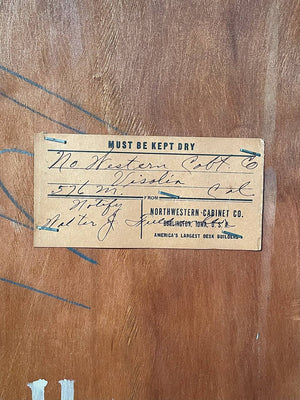 MUST BE KEPT DRY
No Western Cabt. Co
Visalia
576 M. Cal
Notify
FROM
NORTHWESTERN CABINET CO.
J.
BURLINGTON, IOWA, U.S.A.
AMERICA'S LARGEST DESK BUILDERS